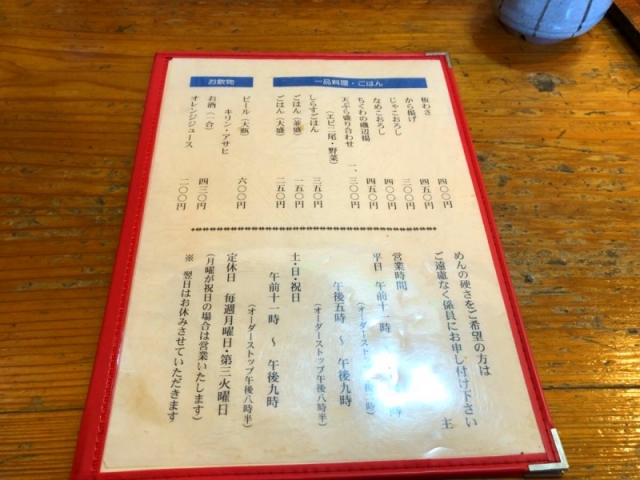 一品料理・ごはん
板わさ 四〇〇円
から揚げ 四五〇円
じゃこおろし 三〇〇円
なめこおろし 四〇〇円
ちくわの磯辺揚 四五〇円
天ぷら盛り合わせ 一、三〇〇円
（エビ二尾・野菜）
しらすごはん 三五〇円
ごはん（並盛） 一五〇円
ごはん（大盛） 二五〇円
お飲物
ビール（大瓶）
キリン・アサヒ 六〇〇円
お酒（一合） 四三〇円
オレンジジュース 二〇〇円
めんの硬さをご希望の方は
ご遠慮なく係員にお申し付け下さい
主
営業時間
平日 午前十一時 時
（オーダーストッ 時）
午後五時 ～ 午後九時
（オーダーストップ午後八時半）
土・日・祝日
午前十一時 ～ 午後九時
（オーダーストップ午後八時半）
定休日 毎週月曜日・第三火曜日
（月曜が祝日の場合は営業いたします）
※ 翌日はお休みさせていただきます